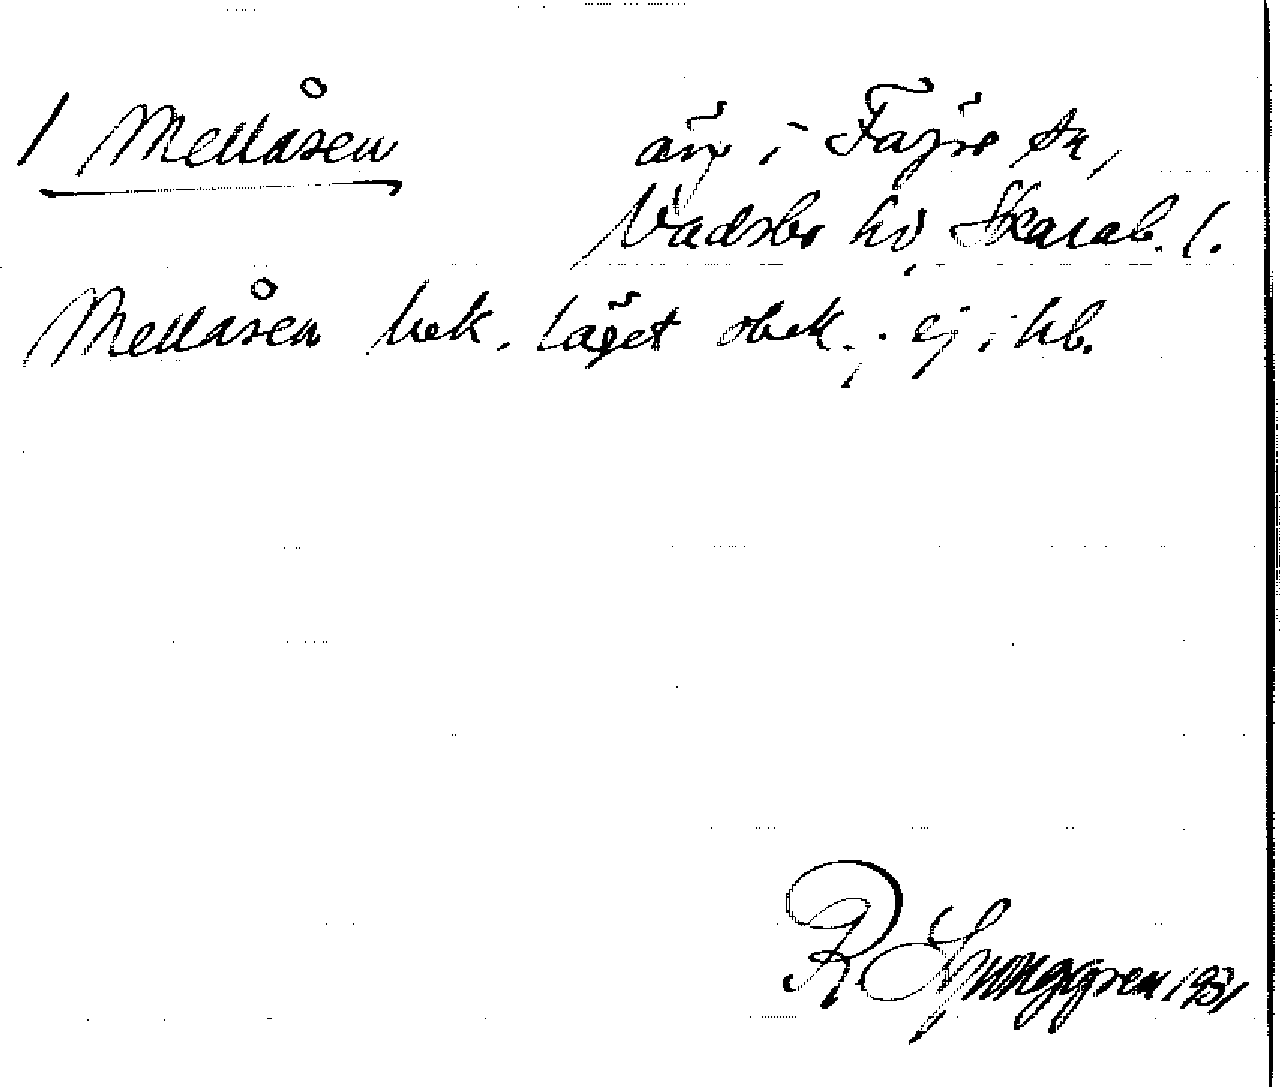 / Mellåsen äng i Fägre sn,
Vadsbo hd, Skarab. l.
Mellåsen bek. läget obek.; ej i kb.
R Ljunggren 1931